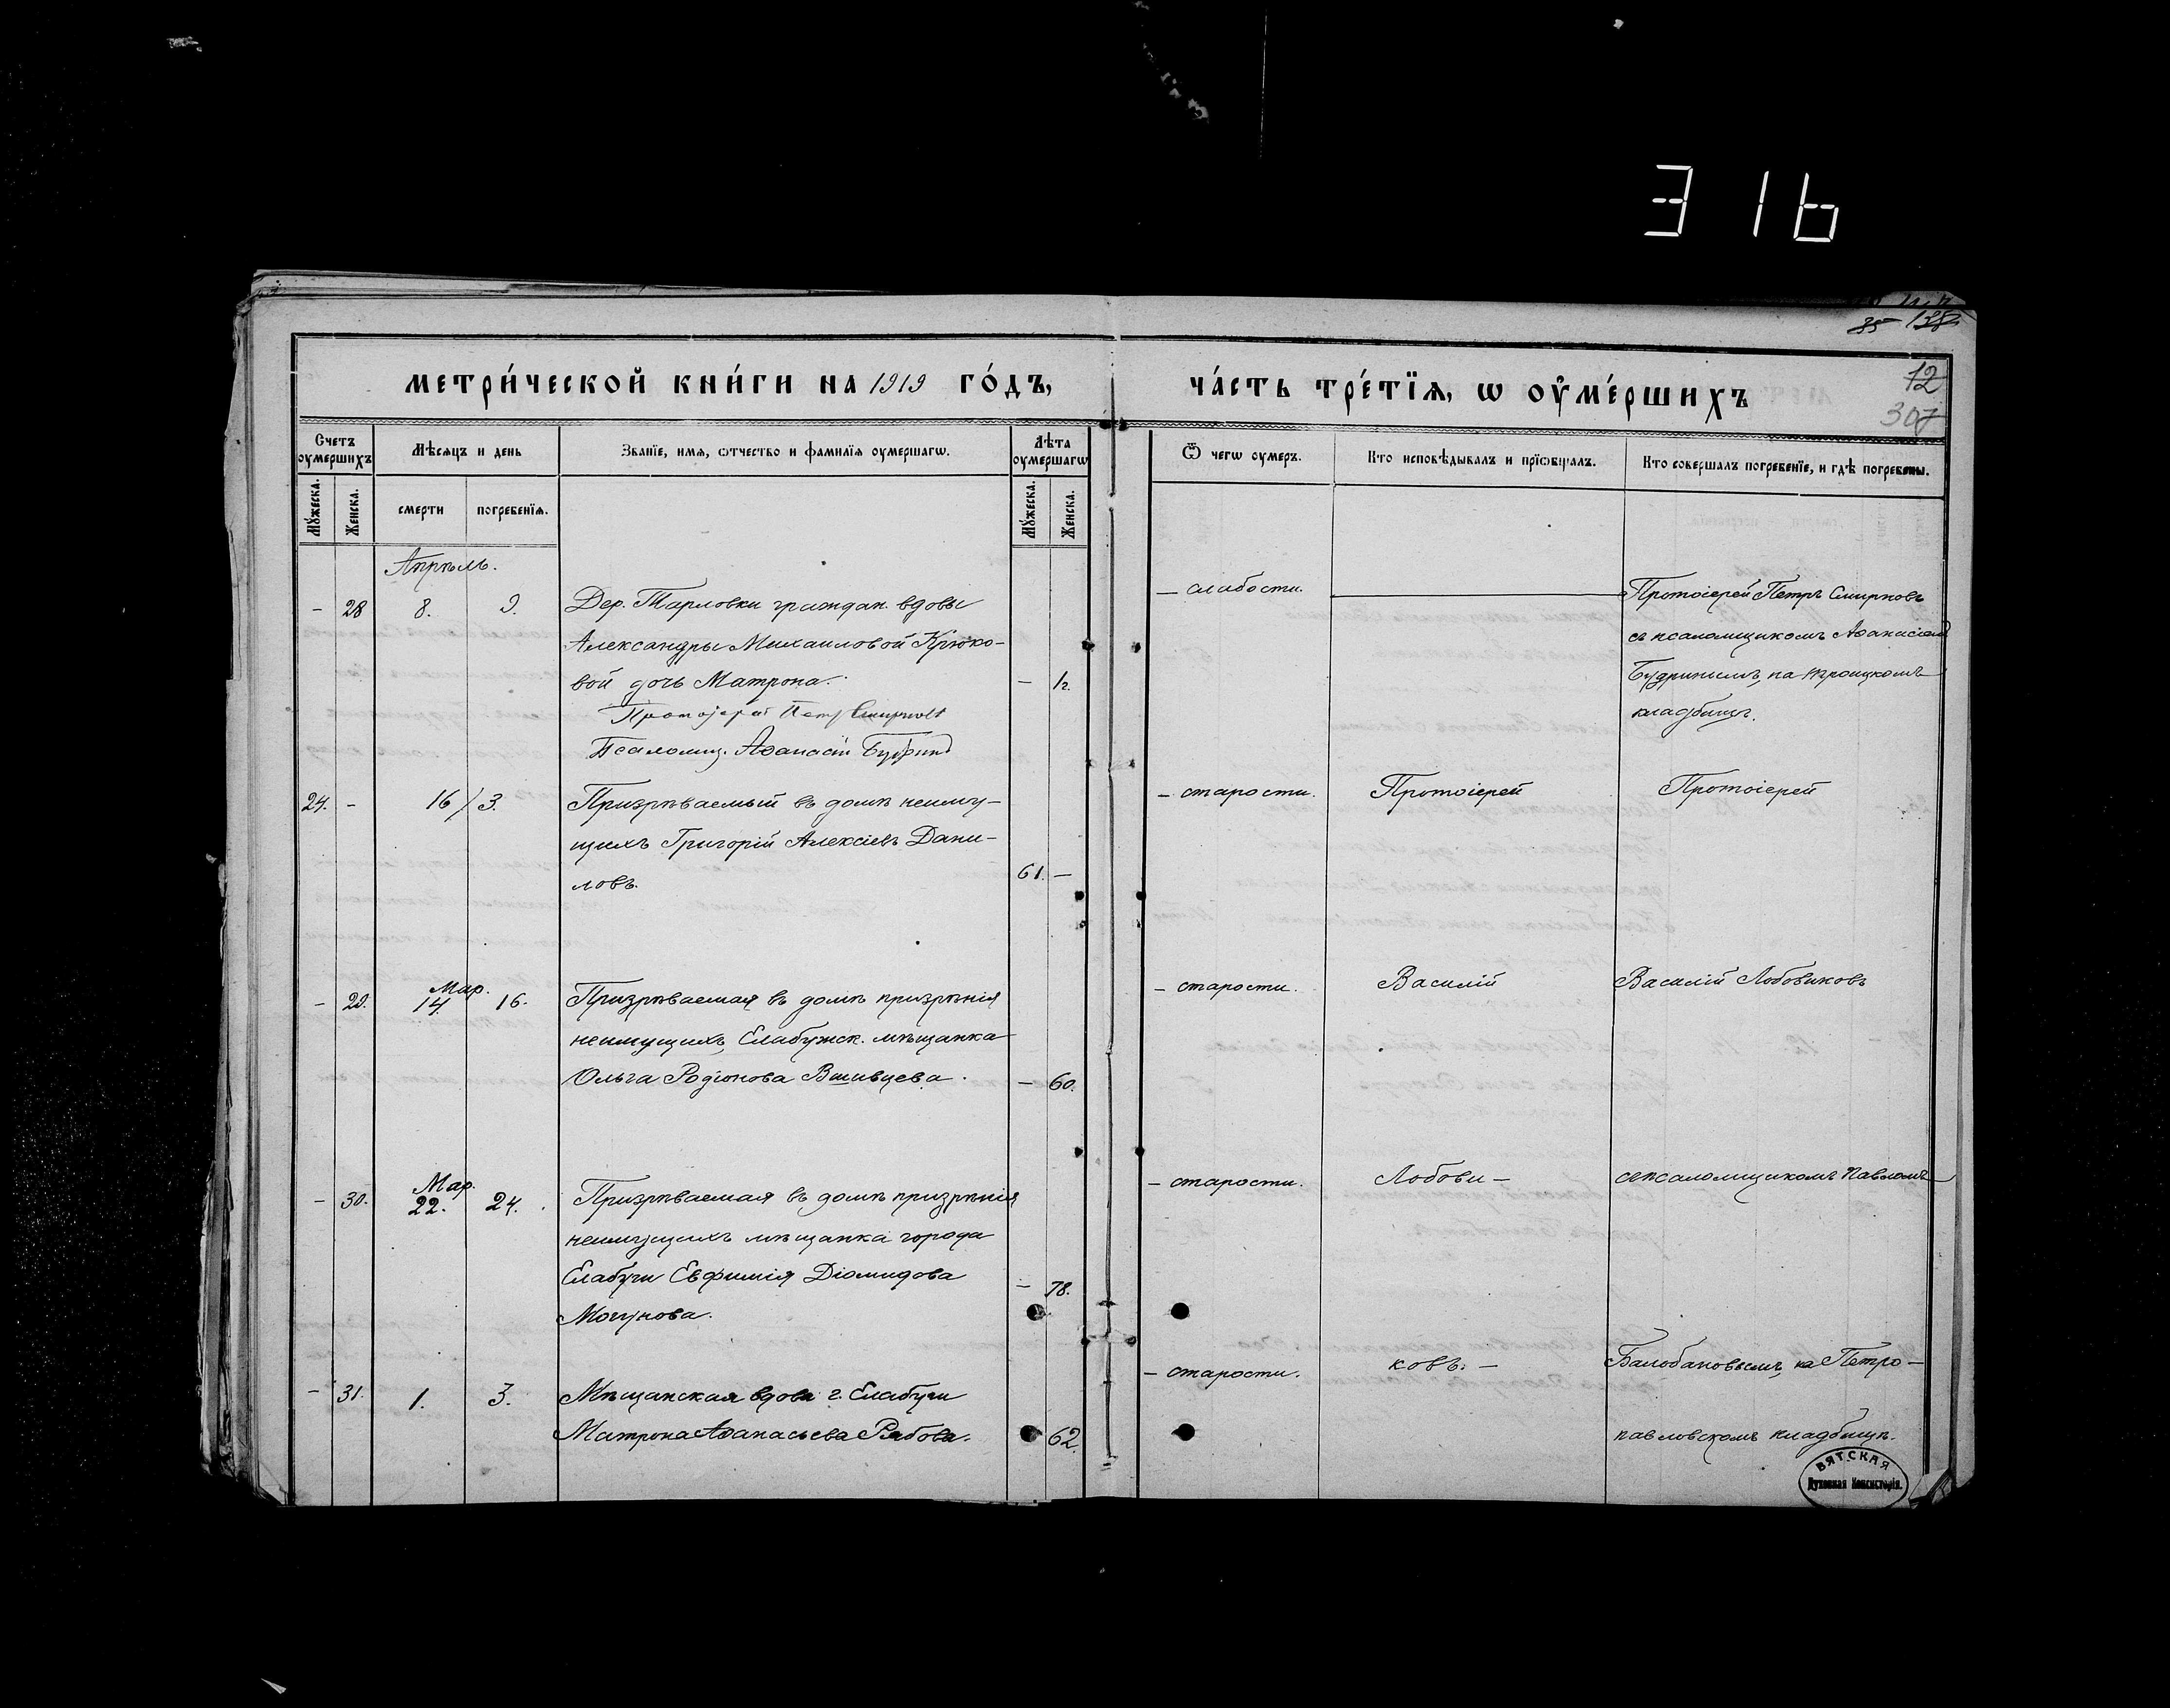 316
35 138
12
307
МЕТРИ́ЧЕСКОЙ КНИ́ГИ НА 1919 ГО́ДЪ,
ЧА́СТЬ ТРЕ́ТЇѦ, Ѡ ОУМЕ́РШИХЪ
Счетъ оумершихъ
Мѣсяцъ и день
Званїе, имѧ, ѿтчество и фамилїѧ оумершагѡ.
Лѣта оумершагѡ
Ѿ чегѡ оумеръ.
Кто исповѣдывалъ и прїѡбщалъ.
Кто совершалъ погребенїе, и гдѣ погребены.
Мужеска.
Женска.
смерти
погребенїѧ.
Мужеска.
Женска.
Апрѣль.
– 28 8. 9. Дер. Тарловки граждан. вдовы
Александры Михаиловой Крюко-
вой дочь Матрона. – ½.
Протоіерей Петр Смирновъ
Псаломщ. Аѳанасій Будринъ
– слабости.
Протоіерей Петръ Смирновъ
съ псаломщикомъ Аѳанасіемъ
Будринымъ, на Троицкомъ
кладбищѣ.
24. – 16/3. Призрѣваемый въ домѣ неиму-
щихъ Григорій Алексіевъ Дани-
ловъ. 61. –
– старости. Протоіерей Протоіерей
Мар.
– 29. 14. 16. Призрѣваемая въ домѣ призрѣнія
неимущихъ, Елабужск. мѣщанка
Ольга Родіонова Вшивцева. – 60.
– старости. Василій Василій Лобовиковъ
Мар.
– 30. 22. 24. Призрѣваемая въ домѣ призрѣнія
неимущихъ мѣщанка города
Елабуги Евфимія Діомидова – 78.
Могунова.
– старости. Лобови– съ псаломщикомъ Павломъ
– 31. 1. 3. Мѣщанская вдова г. Елабуги
Матрона Аѳанасьева Рябова. 62.
– старости. ковъ. – Балобановымъ, на Петро–
павловскомъ кладбищѣ.
ВЯТСКАЯ
Духовная Консисторія.